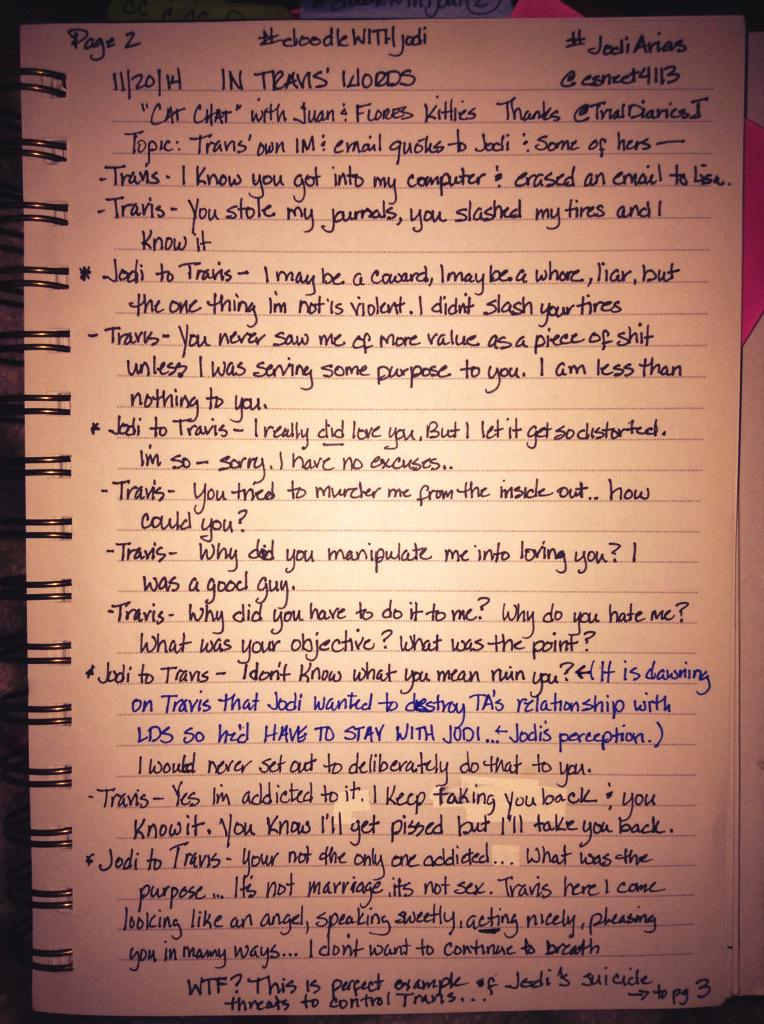 Page 2 #doodleWITHjodi #JodiArias
11/20/14 IN TRAVIS' WORDS @esneet4113
"CAT CHAT" with Juan & FLORES Kitties Thanks @TrialDiariesJ
Topic: Travis' own IM & email quotes to Jodi & some of hers—
-Travis- I Know you got into my computer & erased an email to Lisa.
-Travis- You stole my journals, you slashed my tires and I
Know it
* Jodi to Travis- I may be a coward, I may be a whore, liar, but
the one thing I'm not is violent. I didn't slash your tires
- Travis- You never saw me of more value as a piece of shit
unless I was serving some purpose to you. I am less than
nothing to you.
* Jodi to Travis- I really did love you. But I let it get so distorted.
I'm so - sorry. I have no excuses..
-Travis- You tried to murder me from the inside out.. how
could you?
-Travis- Why did you manipulate me into loving you? I
was a good guy.
-Travis- Why did you have to do it to me? Why do you hate me?
What was your objective? What was the point?
* Jodi to Travis- I don't Know what you mean ruin you? ← (It is dawning
on Travis that Jodi wanted to destroy TA's relationship with
LDS so he'd HAVE TO STAY WITH JODI...← Jodi's perception.)
I would never set out to deliberately do that to you.
-Travis- Yes I'm addicted to it. I Keep taking you back & you
Know it. You Know I'll get pissed but I'll take you back.
* Jodi to Travis- Your not the only one addicted... What was the
purpose... It's not marriage, its not sex. Travis here I come
looking like an angel, speaking sweetly, acting nicely, pleasing
you in many ways... I don't want to continue to breath
WTF? This is perfect example of Jodi's suicide
threats to control Travis... → to pg 3